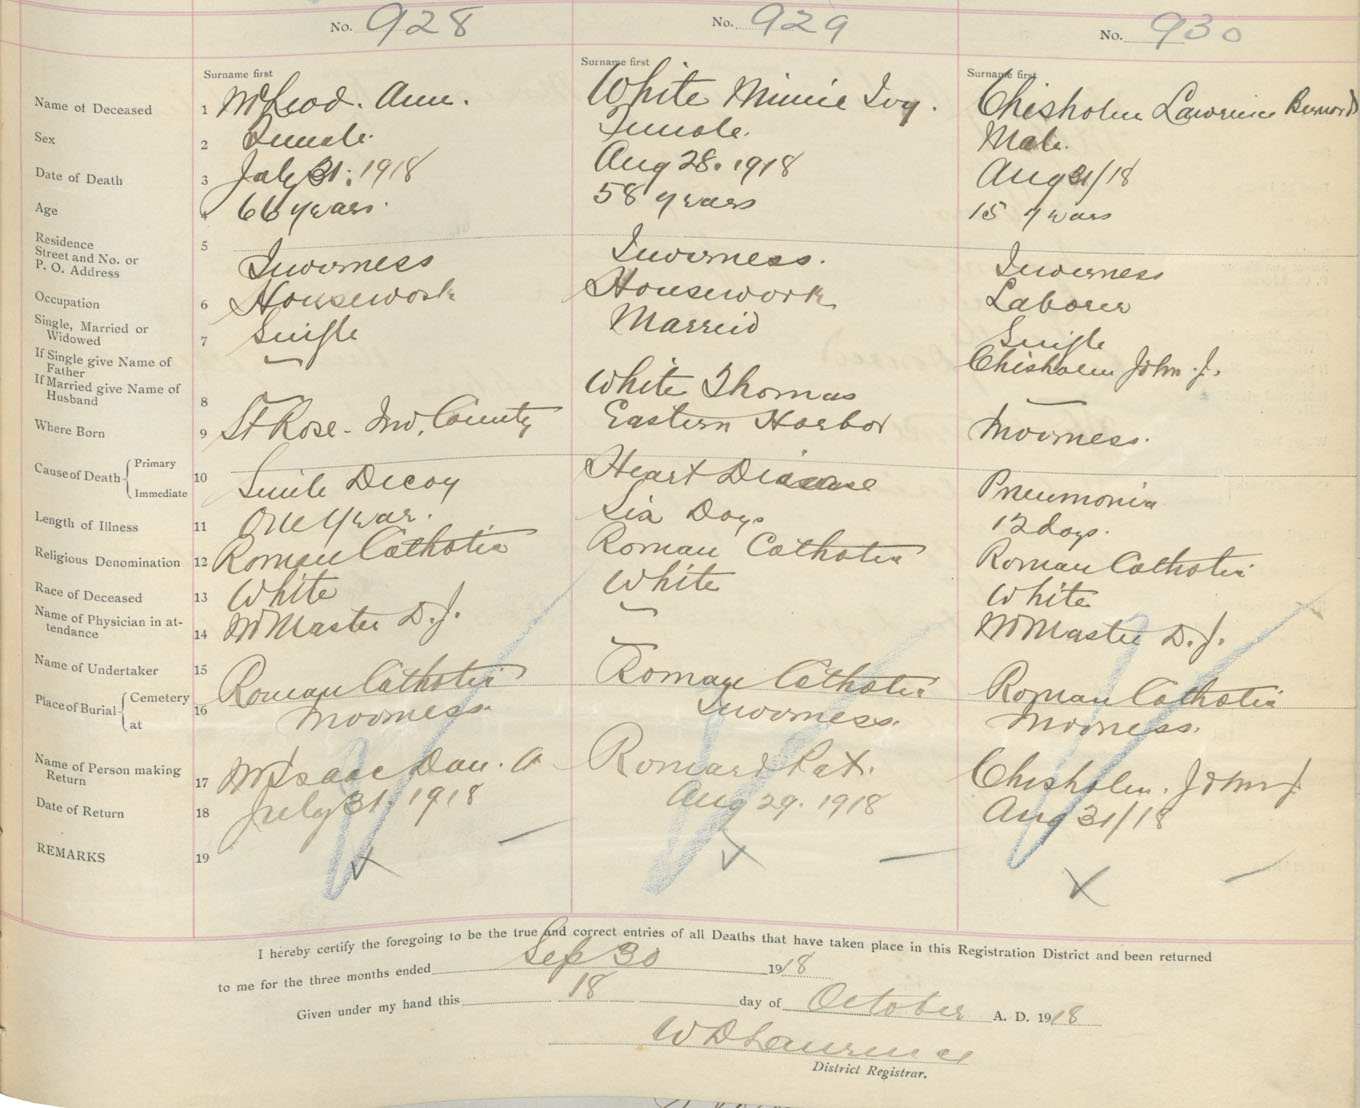 No. 928 No. 929 No. 930
Surname first Surname first Surname first
Name of Deceased 1 McLeod. Ann. White Minnie Ivy. Chisholm Lawrence Bernard
Sex 2 Female. Female. Male.
Date of Death 3 July 31. 1918 Aug 28. 1918 Aug 31/18
Age 4 66 years. 58 years 15 years
Residence Street and No. or P. O. Address 5 Inverness Inverness. Inverness
Occupation 6 Housework Housework Laborer
Single, Married or Widowed 7 Single Married Single
If Single give Name of Father — Chisholm John. J.
If Married give Name of Husband 8 White Thomas —
Where Born 9 St Rose. Inv. County Eastern Harbor Inverness.
Cause of Death { Primary Immediate 10 Senile Decay Heart Disease Pneumonia
Length of Illness 11 One Year. Six Days 12 days.
Religious Denomination 12 Roman Catholic Roman Catholic Roman Catholic
Race of Deceased 13 White White White
Name of Physician in attendance 14 McMaster D. J. — McMaster D. J.
Name of Undertaker 15 —
Place of Burial { Cemetery at 16 Roman Catholic Inverness. Roman Catholic Inverness. Roman Catholic Inverness.
Name of Person making Return 17 McIsaac Dan. A Romard Pat. Chisholm. John J
Date of Return 18 July 31. 1918 Aug 29. 1918 Aug 31/18
REMARKS 19 — — —
I hereby certify the foregoing to be the true and correct entries of all Deaths that have taken place in this Registration District and been returned
to me for the three months ended Sep 30 1918
Given under my hand this 18 day of October A. D. 1918
W D Lawrence
District Registrar.